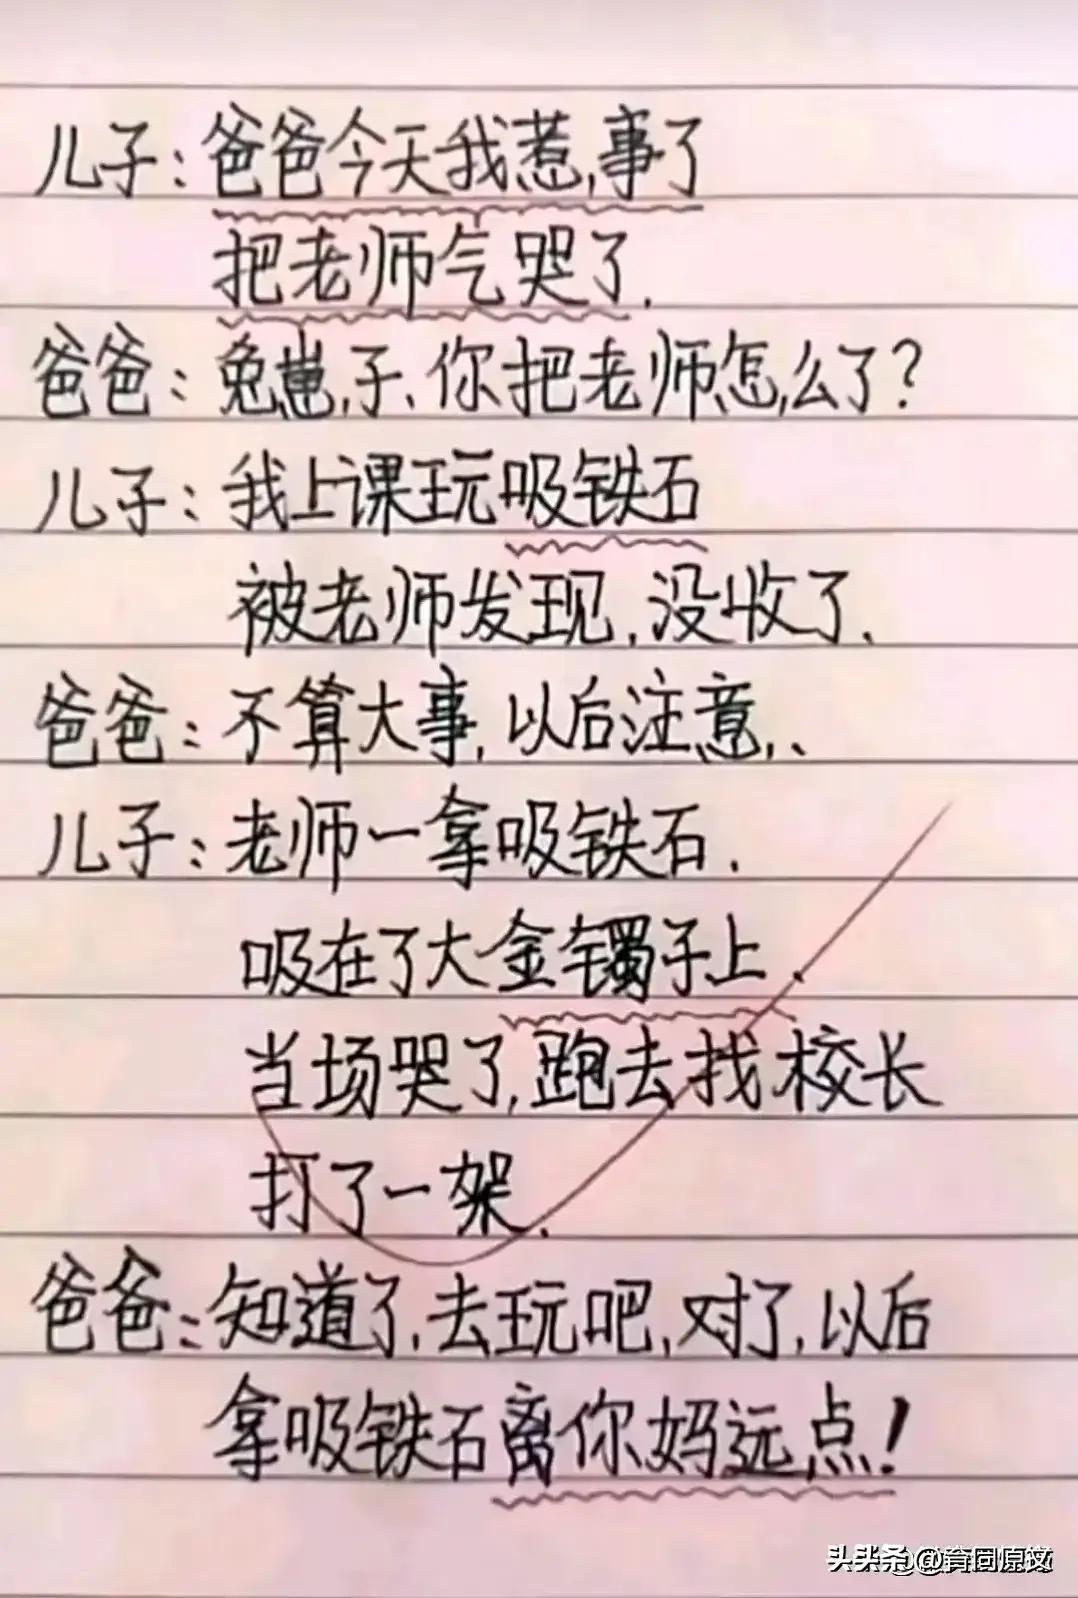 儿子:爸爸今天我惹,事了
把老师气哭了.
爸爸:兔崽,子、你把老师怎么了?
儿子:我上课玩吸铁石
被老师发现,没收了.
爸爸:不算大事,以后注意,、
儿子:老师一拿吸铁石.
吸在了大金镯子上.
当场哭了,跑去找校长
打了一架.
爸爸:知道了,去玩吧,对了,以后
拿吸铁石离你妈远点!
头条@育同原